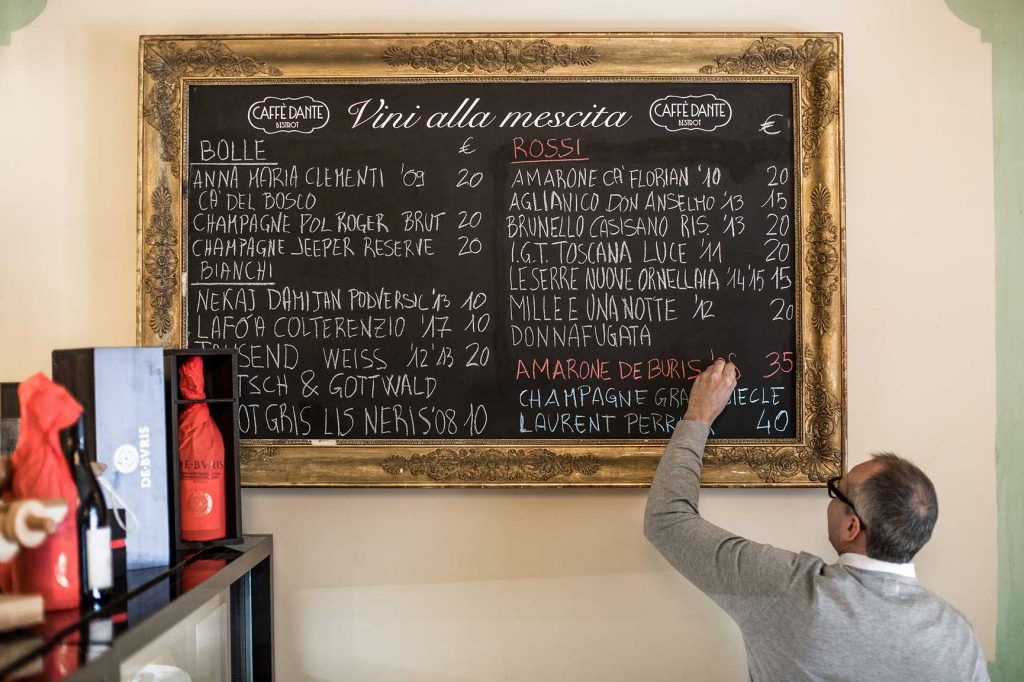 CAFFÈ DANTE
BISTROT
Vini alla mescita
CAFFÈ DANTE
BISTROT
BOLLE €
ANNA MARIA CLEMENTI '09 20
CA DEL BOSCO
CHAMPAGNE POL ROGER BRUT 20
CHAMPAGNE JEEPER RESERVE 20
BIANCHI
NEKAJ DAMIJAN PODVERSIC '13 10
LAFÓA COLTERENZIO '17 10
WEISS '12'13 20
& GOTTWALD
GRIS LIS NERIS '08 10
€
ROSSI
AMARONE CA' FLORIAN '10 20
AGLIANICO DON ANSELMO '13 15
BRUNELLO CASISANO RIS. '13 20
I.G.T. TOSCANA LUCE '11 20
LE SERRE NUOVE ORNELLAIA '14 '15 15
MILLE E UNA NOTTE '12 20
DONNAFUGATA
AMARONE DE BURIS 35
CHAMPAGNE
LAURENT 40
DE·BVRIS
DE·BVRIS